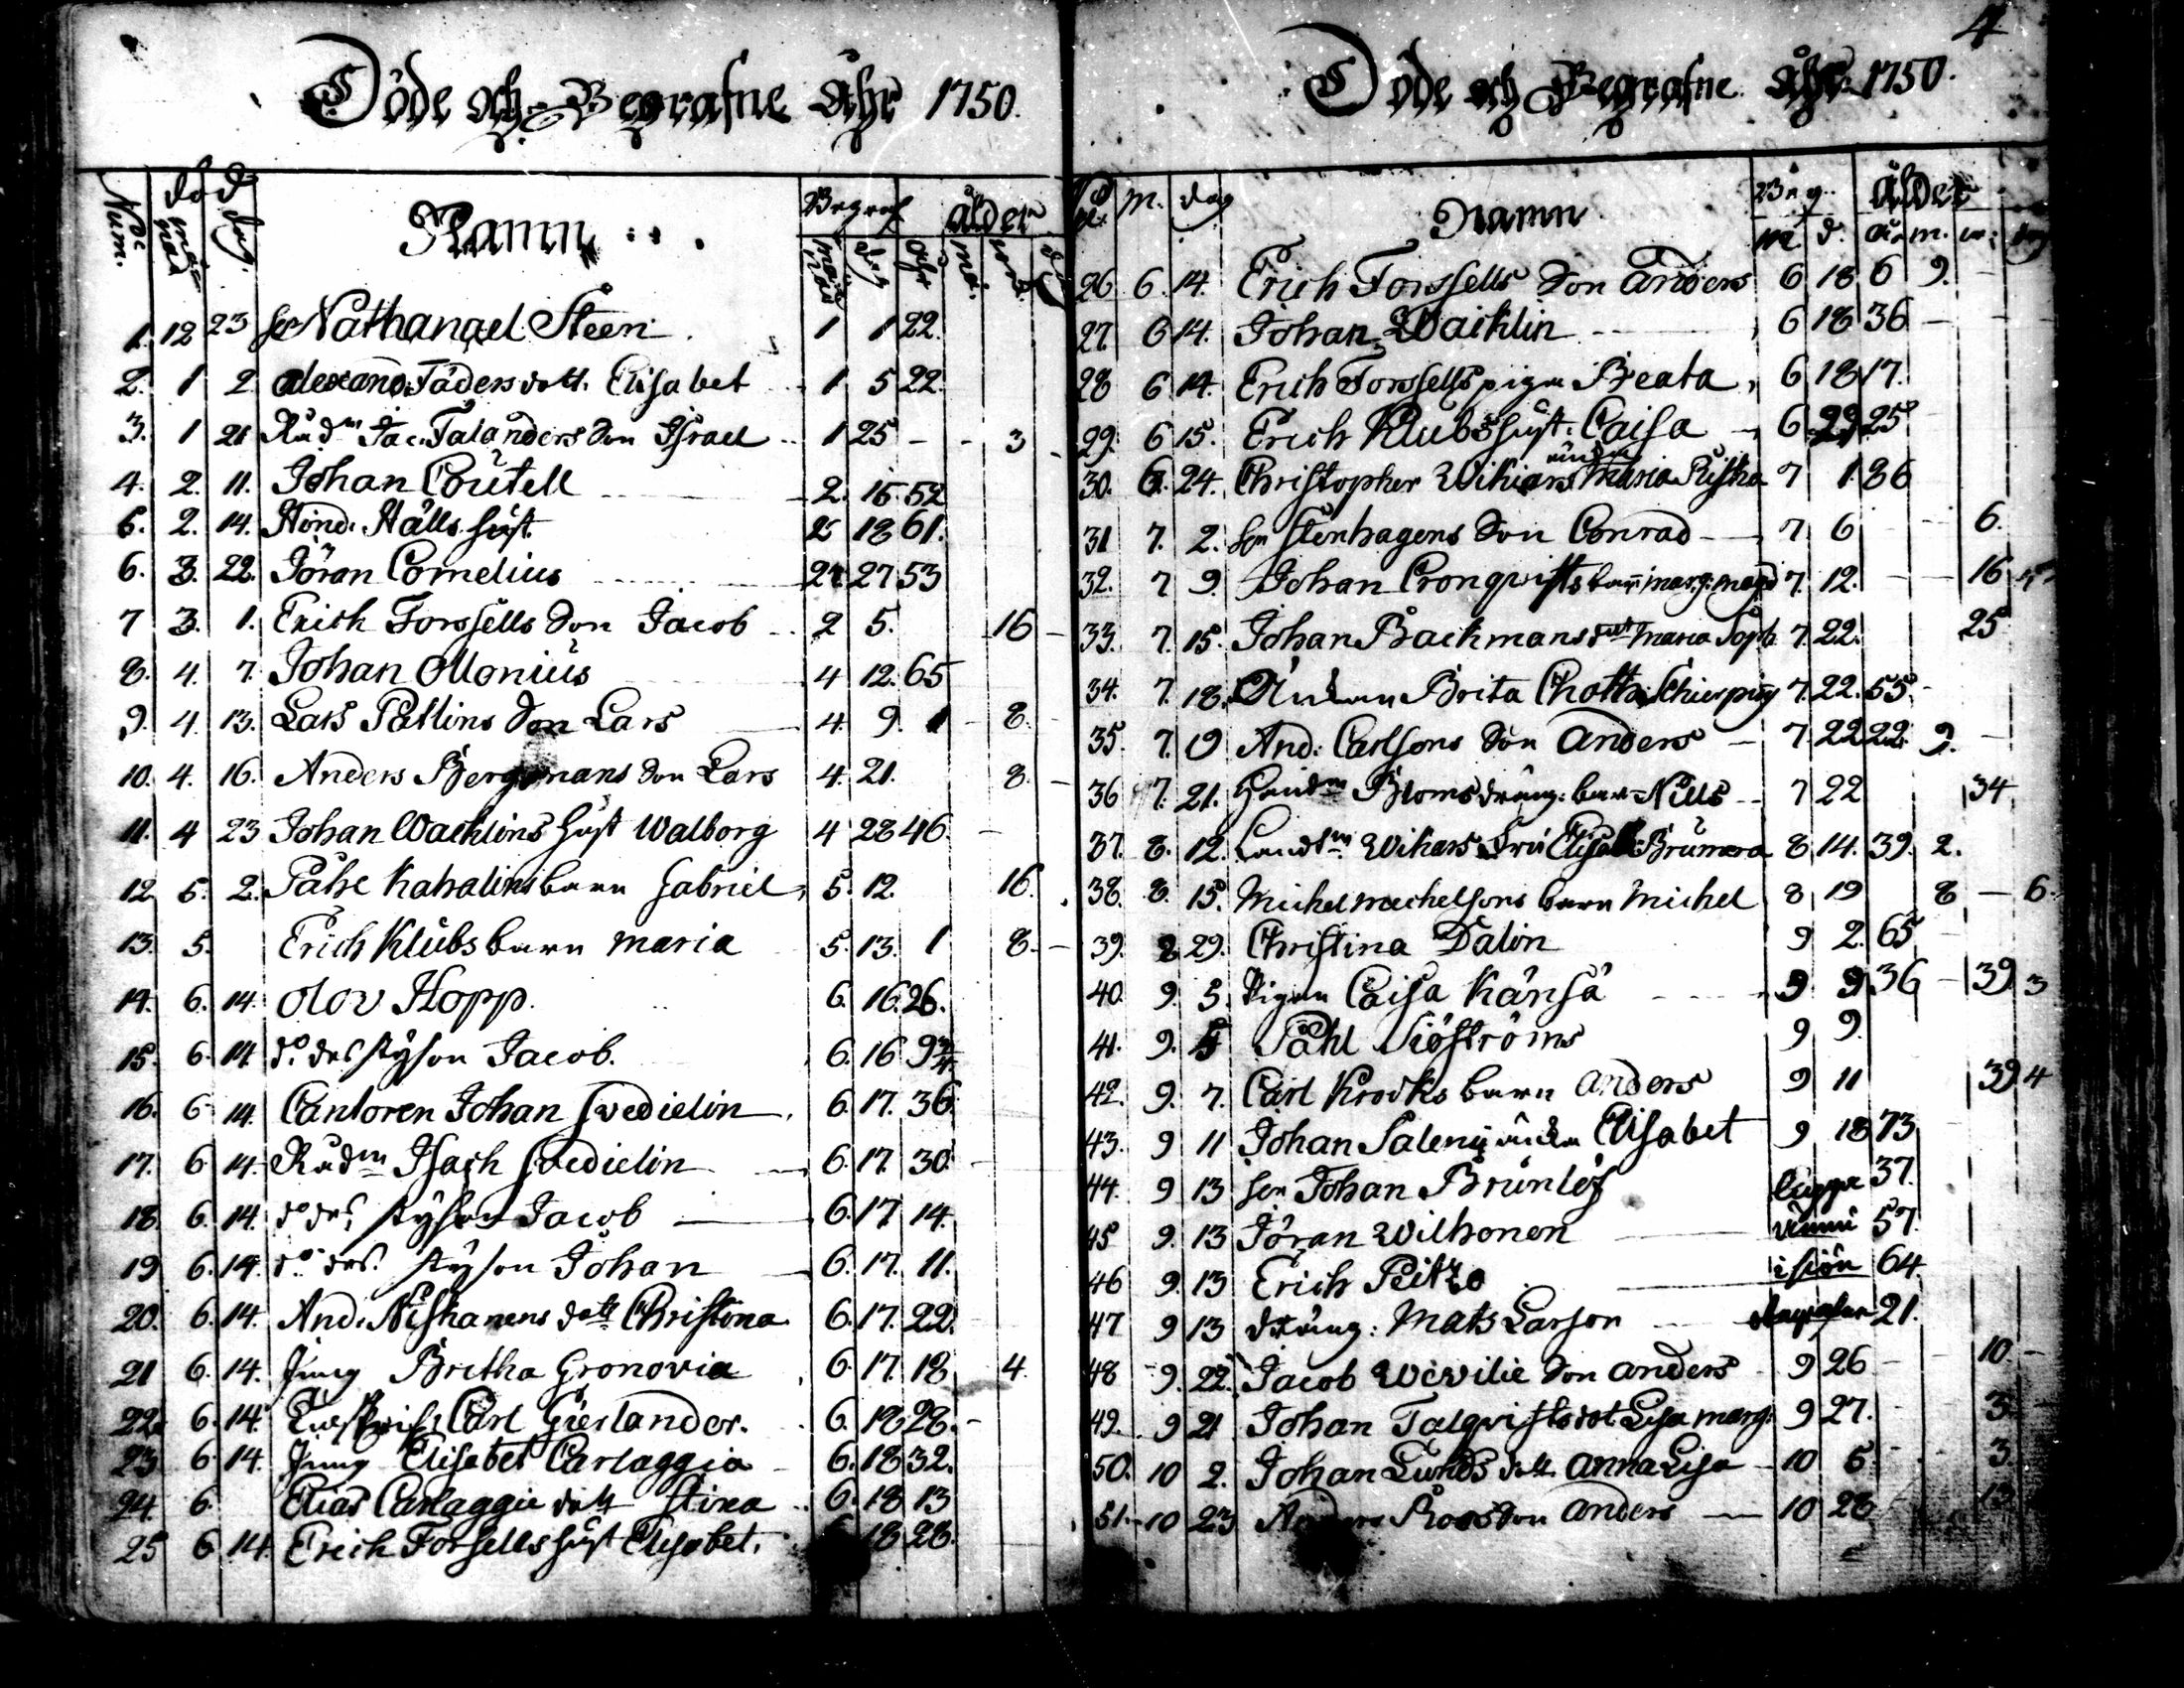 4
Döde och Begrafne Åhr 1750.
Num. död månad dag. Namn Begraf. månad dag ålder åhr må. dag
1. 12 23 Nathanael Steen. 1 1 22.
2. 1 2 Alexand. Täders dott. Elisabet 1 5 22.
3. 1 21 Rådm Jac. Talanders Son Israel 1 25 - - 3
4. 2. 11. Johan Coutell 2. 15. 52
5. 2. 14. Hind. Hälls hust. 2 18 61.
6. 3. 22. Jöran Cornelius 27 53
7 3. 1. Erich Forssells Son Jacob 2 5. 16 -
8. 4. 7. Johan Monius 4 12. 65
9. 4. 13. Lars Pallins Son Lars 4. 9. 1 - 8.
10. 4. 16. Anders Bergmans Son Lars 4. 21. 8. -
11. 4 23 Johan Wachlins hust Walborg 4 28 46 -
12. 5. 2. Påhl barn Gabriel 5. 12. 16.
13. 5. Erich Klubs barn Maria 5. 13. 1 8. -
14. 6. 14. Olov Hopp. 6. 16. 26.
15. 6. 14. do des styson Jacob. 6. 16 9 3/4
16. 6 14. Cantoren Johan Svedielin 6. 17. 36.
17. 6 14. Rådm Isach Svedielin 6. 17. 30.
18. 6. 14. do des styson Jacob 6. 17 14.
19 6. 14. do des. styson Johan 6. 17. 11.
20. 6. 14. And. Niskanens dott Christina 6. 17. 22.
21 6. 14. Jung Britha Gronovia 6. 17. 18 4.
22. 6. 14. Carl Gierlander. 6. 18 28. -
23 6 14. Jung Elisabet Carlaggia 6. 18 32.
24. 6 Elias Carlaggie dott Stina 6. 18 13
25 6 14. Erich Forssells hust Elisabet. 18 28.
Döde och Begrafne Åhr 1750.
m. dag Namn Beg. m. d. ålder år m. dag
26 6. 14. Erich Forssells Son Anders 6 18 6 9.
27. 6 14. Johan Waihlin 6 18 36 -
28 6 14. Erich Forssells piga Beata 6 18 17.
29. 6 15. Erich Klubs hust. Caisa 6 29 25
30. 6. 24. Christopher Wikars änka Maria 7 1. 36
31 7. 2. Stenhagens Son Conrad 7 6 6.
32. 7 9. Johan Cronqvists barn marg: magd 7. 12. - 16
33. 7. 15. Johan Backmans dott Maria Soph 7. 22. 25
34. 7. 18. Änkan Brita 7. 22. 55.
35. 7. 19 And: Carlsons Son Anders - 7. 22 22. 9. -
36 7. 21. Blomsdräng: barn Nills 7 22 34
37. 8. 12. Landtm Wikars Fru 8 14. 39. 2.
38. 8. 15. Michel Mechelsons barn Michel 8 19 8 - 6.
39. 8 29. Christina Dalin 9 2. 65
40. 9. 5. Pigan Caisa Känsä 9 9 36 - 39 3
41. 9. 5 Påhl Siöströms 9 9.
42. 9. 7. Carl Krooks barn Anders 9 11 39 4
43. 9 11 Johan Salenij änka Elisabet 9 18 73
44. 9 13 Johan Brunlöf ligga 37.
45 9. 13 Jöran Wilhonen ännu 57.
46 9. 13 Erich Peitzo i siön 64.
47 9 13 dräng: Mats Larson 21.
48 9. 22. Jacob Wivilie Son Anders 9 26 - 10. -
49. 9 21 Johan Talqvists dot Lisa marg: 9 27. 3
50. 10 2. Johan Lunds dott. Anna Lisa 10 5 3
51. 10 23 Anders Roos Son Anders 10 28 13